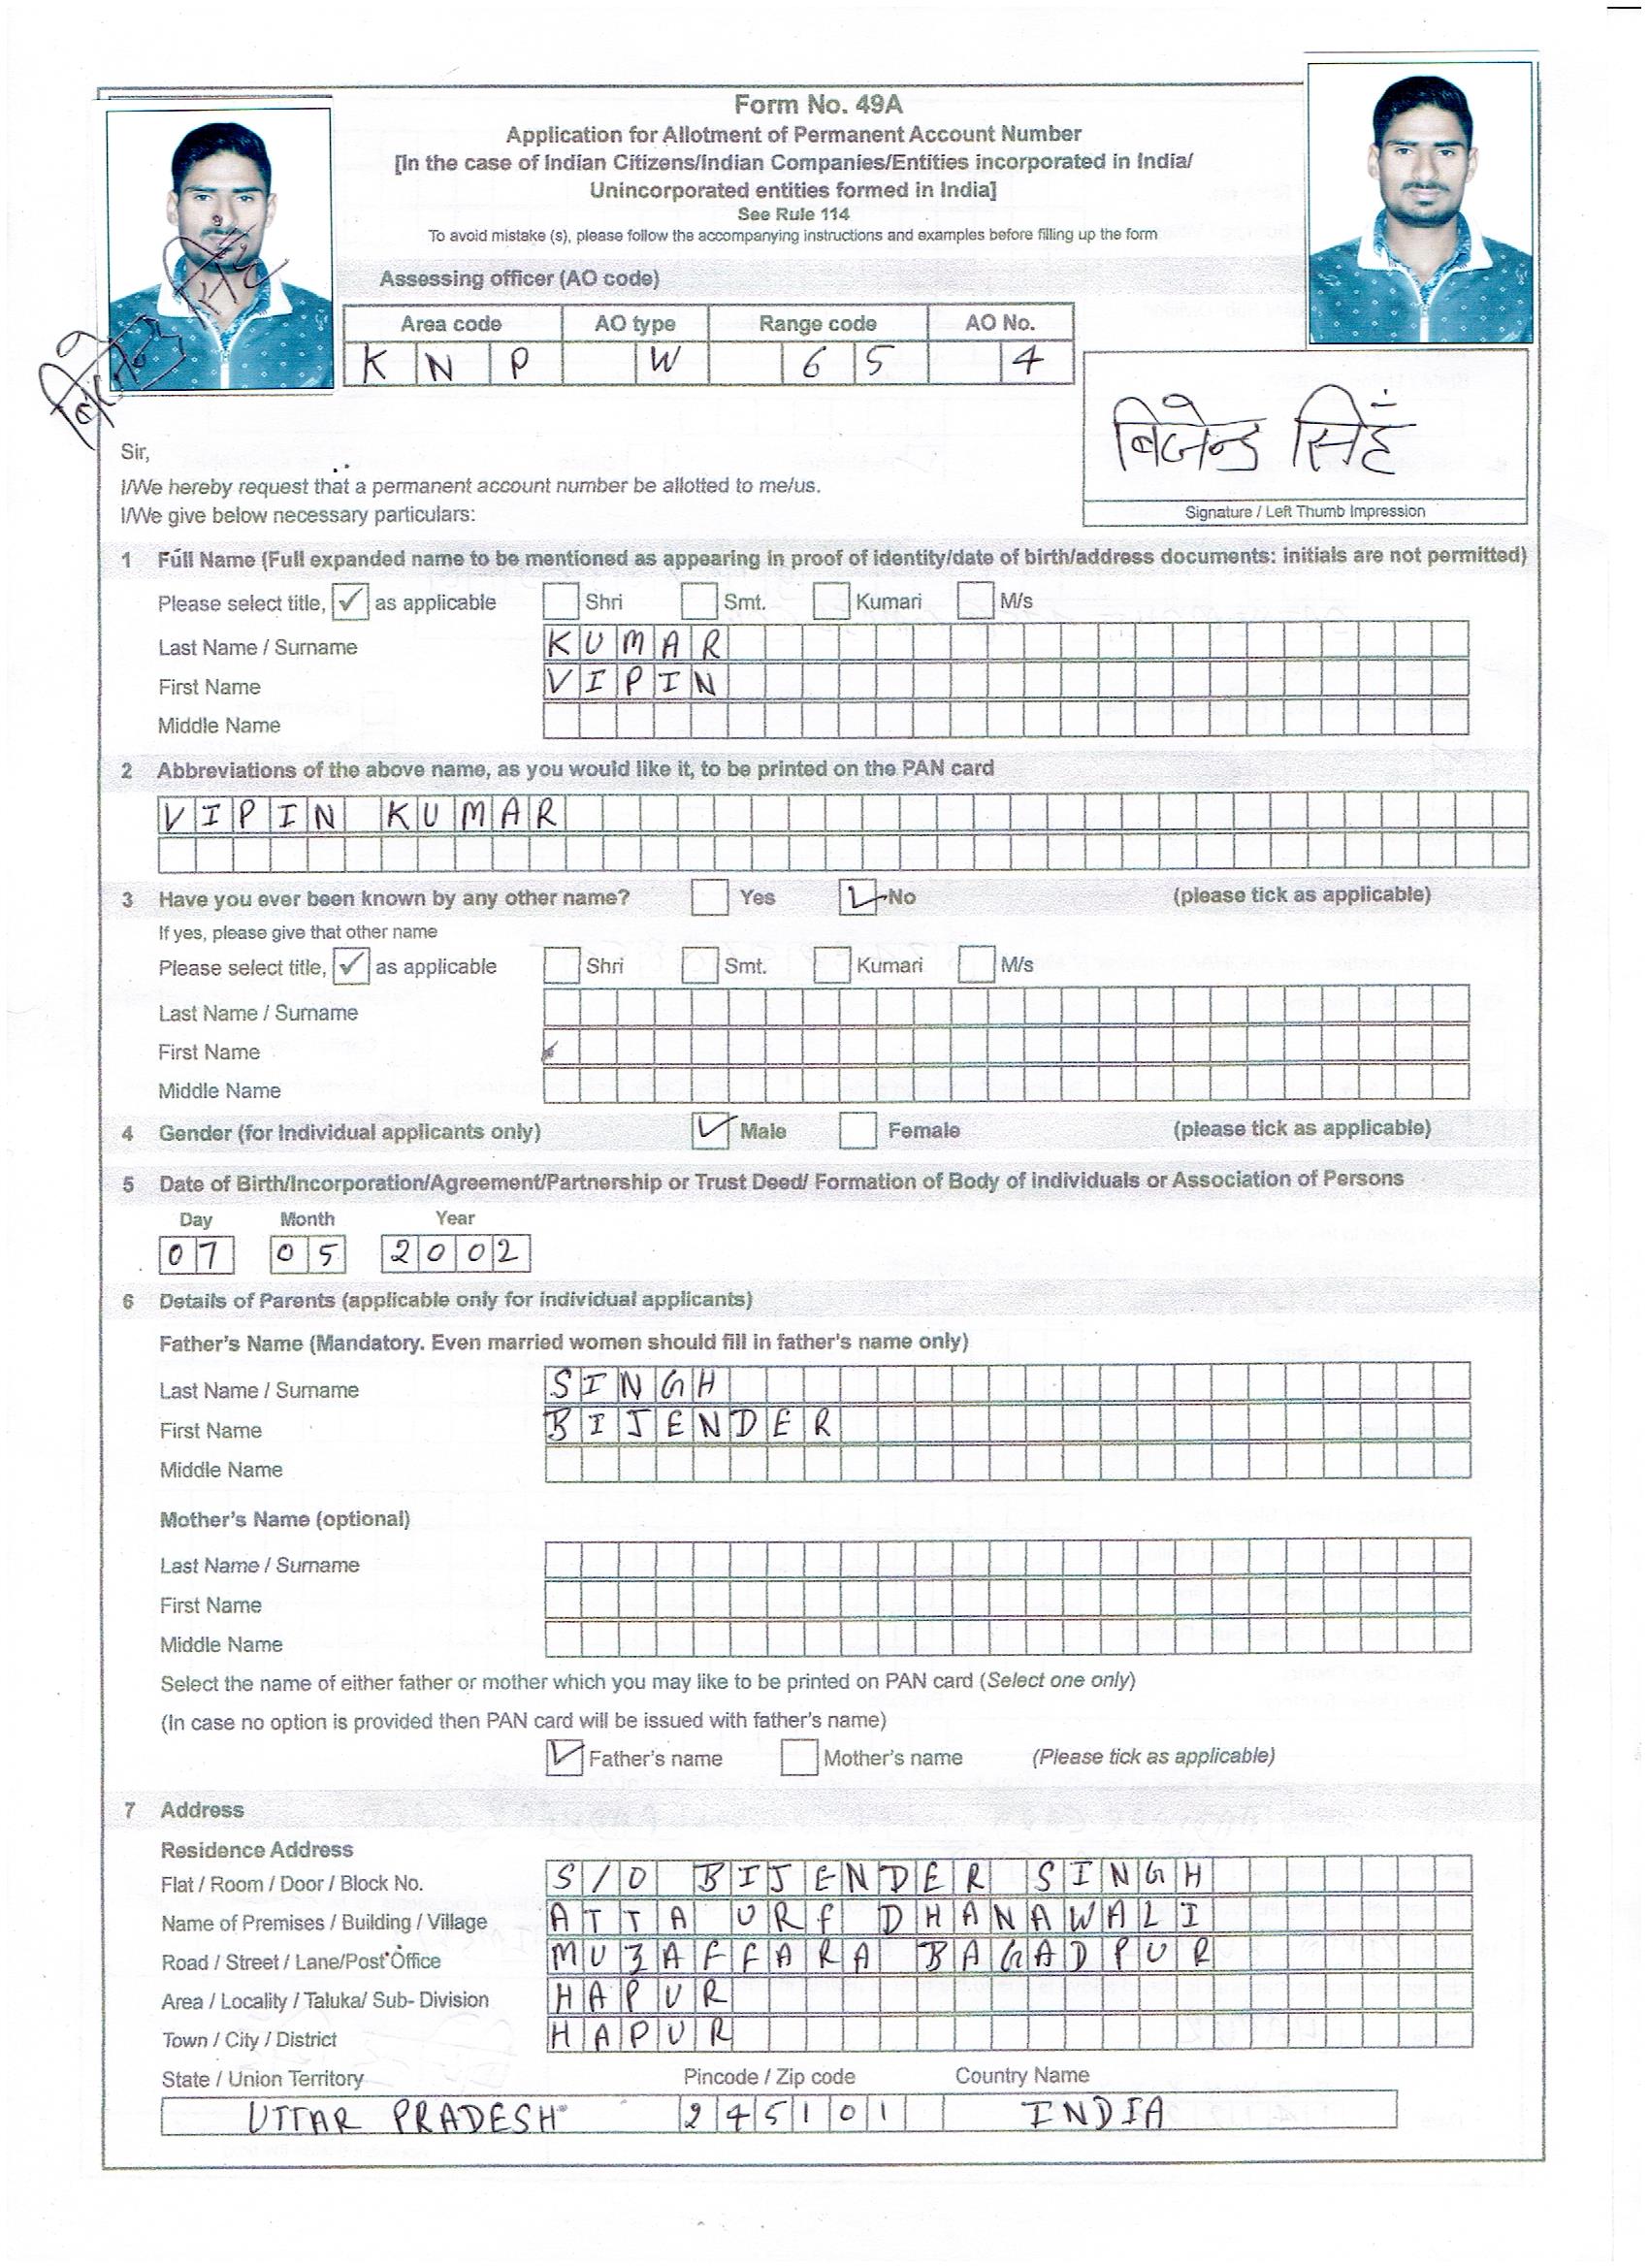 Form No. 49A
Application for Allotment of Permanent Account Number
[In the case of Indian Citizens/Indian Companies/Entities incorporated in India/
Unincorporated entities formed in India]
See Rule 114
To avoid mistake (s), please follow the accompanying instructions and examples before filling up the form
Assessing officer (AO code)
Area code AO type Range code AO No.
KNP W 65 4
बिजेन्द्र सिहं
Signature / Left Thumb Impression
Sir,
I/We hereby request that a permanent account number be allotted to me/us.
I/We give below necessary particulars:
1 Full Name (Full expanded name to be mentioned as appearing in proof of identity/date of birth/address documents: initials are not permitted)
Please select title, ✓ as applicable Shri Smt. Kumari M/s
Last Name / Surname KUMAR
First Name VIPIN
Middle Name
2 Abbreviations of the above name, as you would like it, to be printed on the PAN card
VIPIN KUMAR
3 Have you ever been known by any other name? Yes ✓ No (please tick as applicable)
If yes, please give that other name
Please select title, ✓ as applicable Shri Smt. Kumari M/s
Last Name / Surname
First Name
Middle Name
4 Gender (for Individual applicants only) ✓ Male Female (please tick as applicable)
5 Date of Birth/Incorporation/Agreement/Partnership or Trust Deed/ Formation of Body of individuals or Association of Persons
Day Month Year
07 05 2002
6 Details of Parents (applicable only for individual applicants)
Father's Name (Mandatory. Even married women should fill in father's name only)
Last Name / Surname SINGH
First Name BIJENDER
Middle Name
Mother's Name (optional)
Last Name / Surname
First Name
Middle Name
Select the name of either father or mother which you may like to be printed on PAN card (Select one only)
(In case no option is provided then PAN card will be issued with father's name)
✓ Father's name Mother's name (Please tick as applicable)
7 Address
Residence Address
Flat / Room / Door / Block No. S/O BIJENDER SINGH
Name of Premises / Building / Village ATTA URf DHANAWALI
Road / Street / Lane/Post Office MUZAFFARA BAGADPUR
Area / Locality / Taluka/ Sub- Division HAPUR
Town / City / District HAPUR
State / Union Territory Pincode / Zip code Country Name
UTTAR PRADESH 245101 INDIA